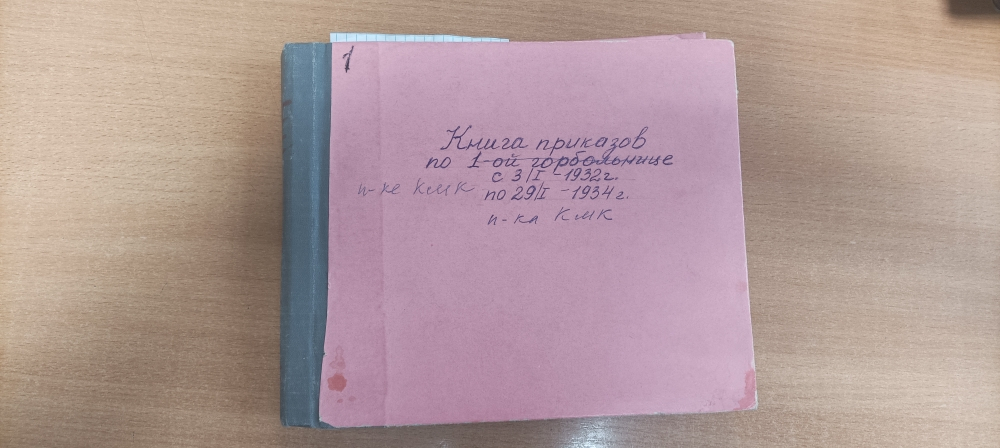 1
Книга приказов
по 1-ой горбольнице
с 3/I -1932г.
п-ке КМК по 29/I -1934г.
п-ка КМК